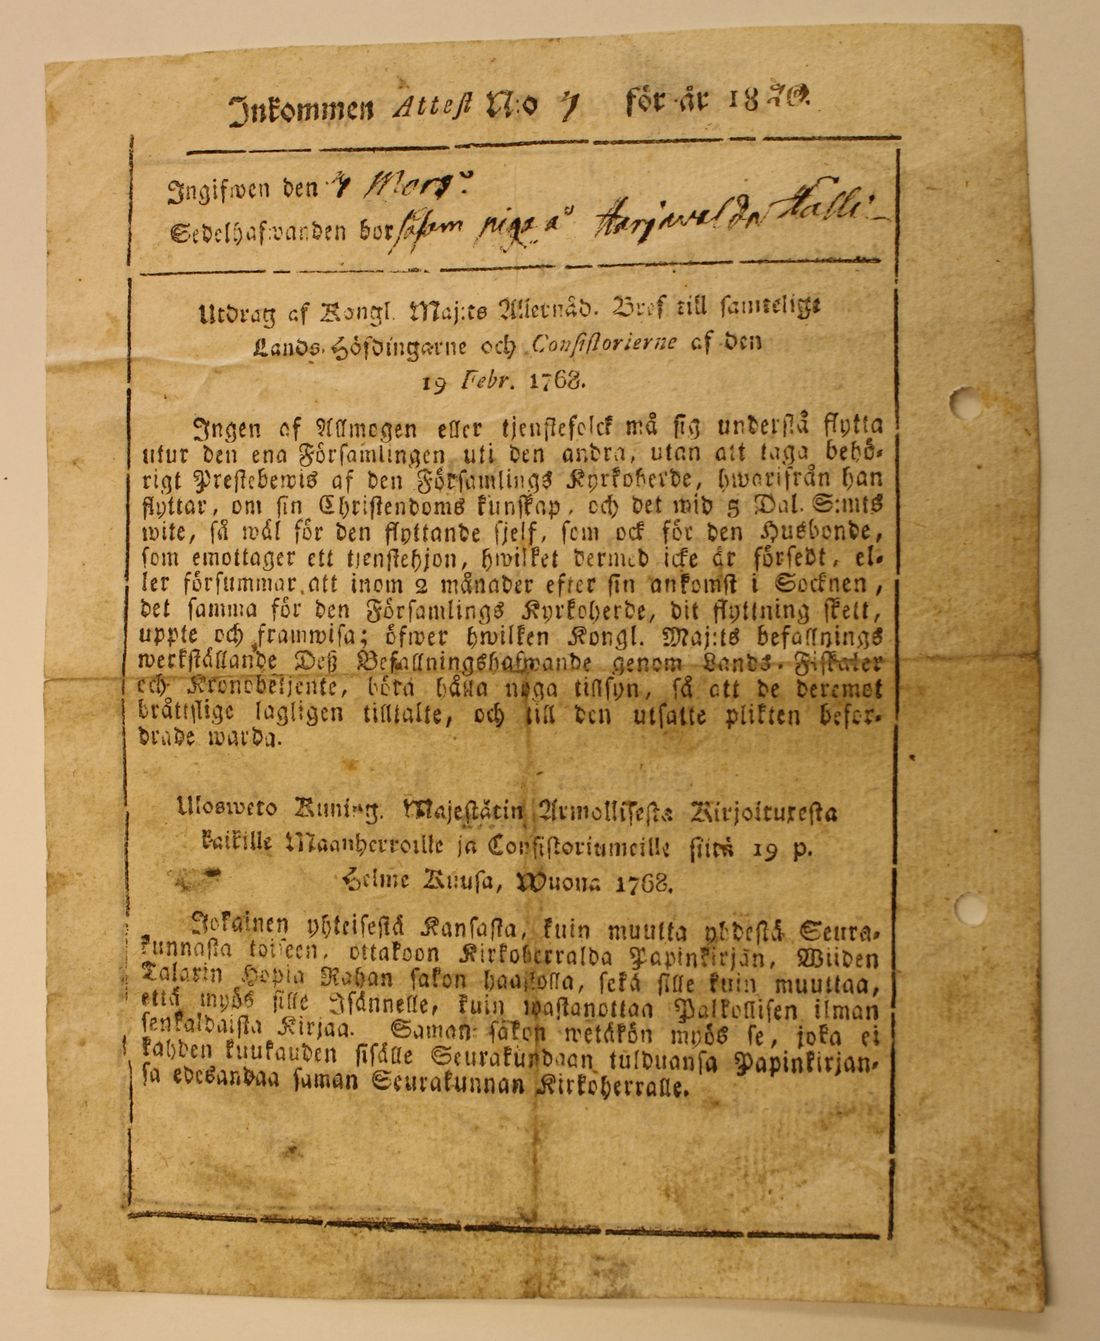 Inkommen Attest N:o 7 för år 1820.
Ingifwen den 7 Mars
Sedelhafwanden bor såsom piga å Harjawalda Halli
Utdrag af Kongl. Maj:ts Allernåd. Bref till samtelige
Lands-Höfdingarne och Consistorierne af den
19 Febr. 1768.
Ingen af Allmogen eller tjenstefolck må sig understå flytta
utur den ena Församlingen uti den andra, utan att taga behö-
rigt Prestebewis af den Församlings Kyrkoherde, hwarifrån han
flyttar, om sin Christendoms kunskap, och det wid 5 Dal. S:mts
wite, så wäl för den flyttande sjelf, som ock för den Husbonde,
som emottager ett tjenstehjon, hwilket dermed icke är försedt, el-
ler försummar att inom 2 månader efter sin ankomst i Socknen,
det samma för den Församlings Kyrkoherde, dit flyttning skett,
uppte och framwisa; öfwer hwilken Kongl. Maj:ts befallnings
werkställande Deß Befallningshafwande genom Lands-Fiskaler
och Kronobetjente, böra hålla noga tillsyn, så att de deremot
bråttslige lagligen tilltalte, och till den utsatte plikten befor-
drade warda.
Ulosweto Kuning. Majestätin Armollisesta Kirjoituxesta
kaikille Maanherroille ja Consistoriumeille siitä 19 p.
Helme Kuusa, Wuona 1768.
Jokainen yhteisestä Kansasta, kuin muutta yhdestä Seura-
kunnasta toiseen, ottakoon Kirkoherralda Papinkirjan, Wiiden
Talarin Hopia Rahan sakon haastolla, sekä sille kuin muuttaa,
että myös sille Isännelle, kuin wastanottaa Palkollisen ilman
senkaldaista Kirjaa. Saman sakon wetäkön myös se, joka ei
kahden kuukauden sisälle Seurakundaan tulduansa Papinkirjan-
sa edesandaa saman Seurakunnan Kirkoherralle.